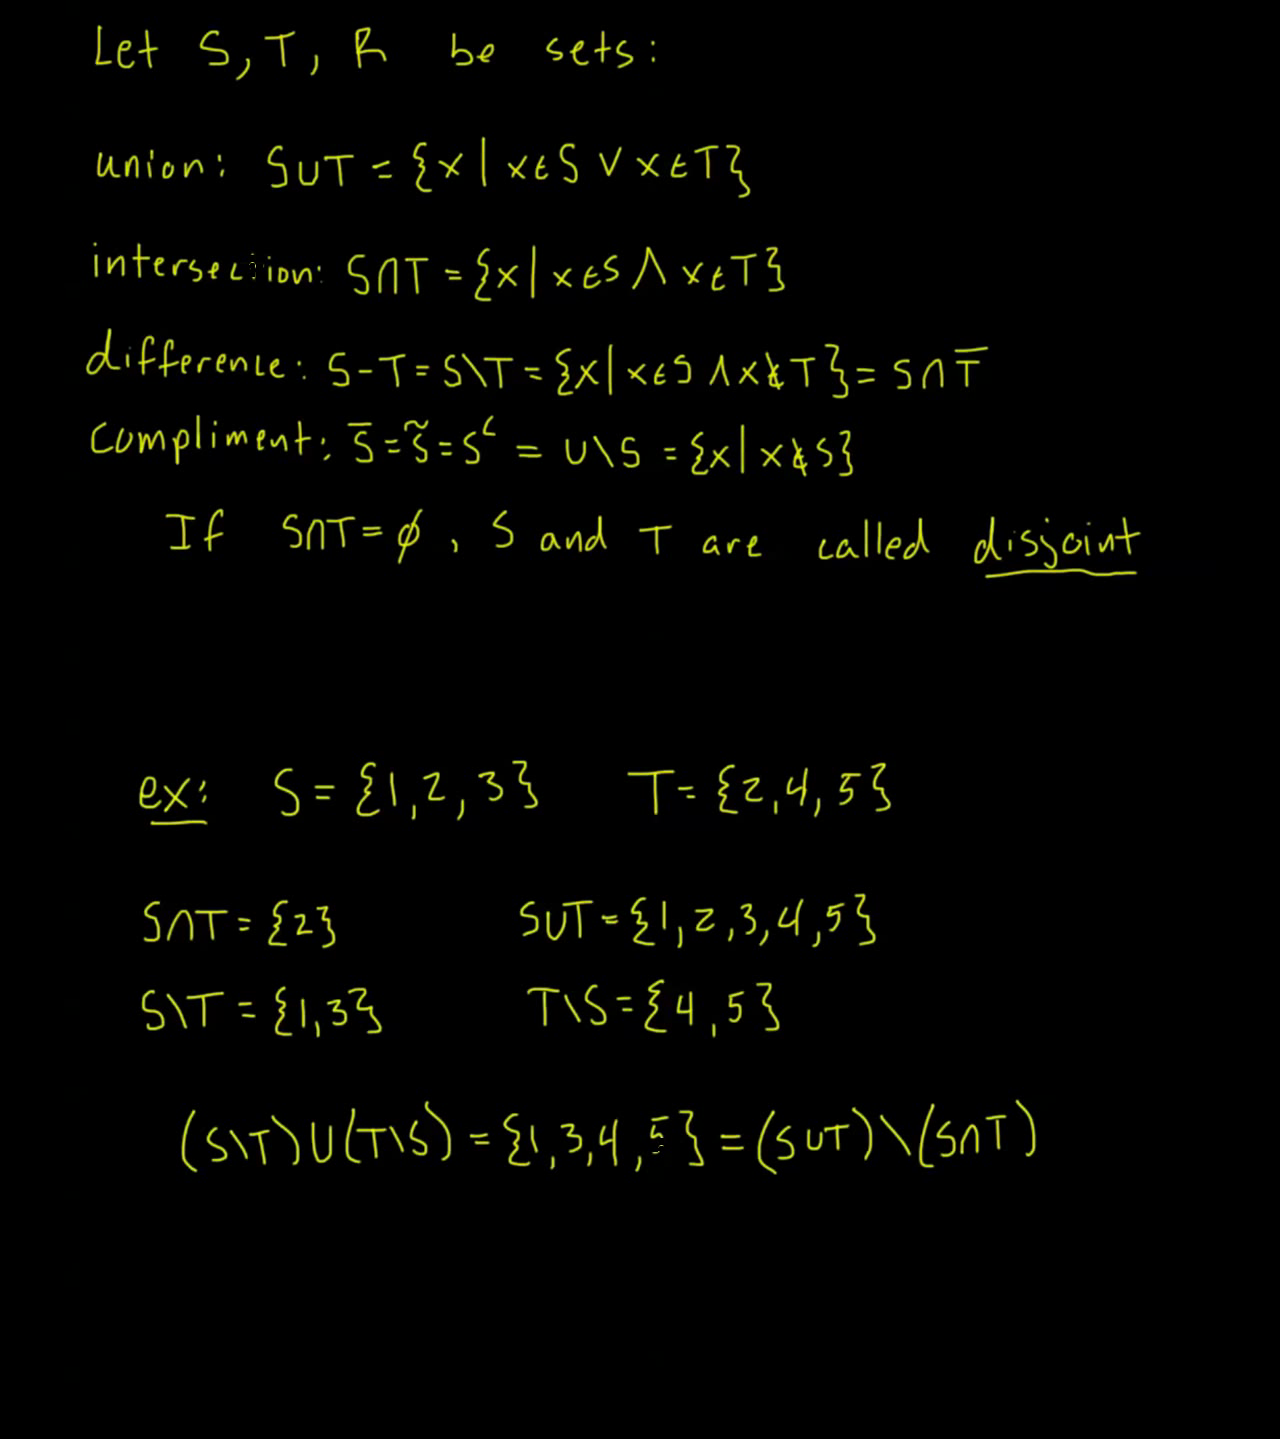 Let S, T, R be sets:
union: S∪T = {x | x∈S ∨ x∈T}
intersection: S∩T = {x | x∈S ∧ x∈T}
difference: S-T = S\T = {x | x∈S ∧ x∉T} = S∩T̅
compliment: S̅ = S̃ = Sᶜ = U\S = {x | x∉S}
If S∩T = ∅, S and T are called disjoint
ex: S = {1, 2, 3} T = {2, 4, 5}
S∩T = {2} S∪T = {1, 2, 3, 4, 5}
S\T = {1, 3} T\S = {4, 5}
(S\T)∪(T\S) = {1, 3, 4, 5} = (S∪T)\(S∩T)